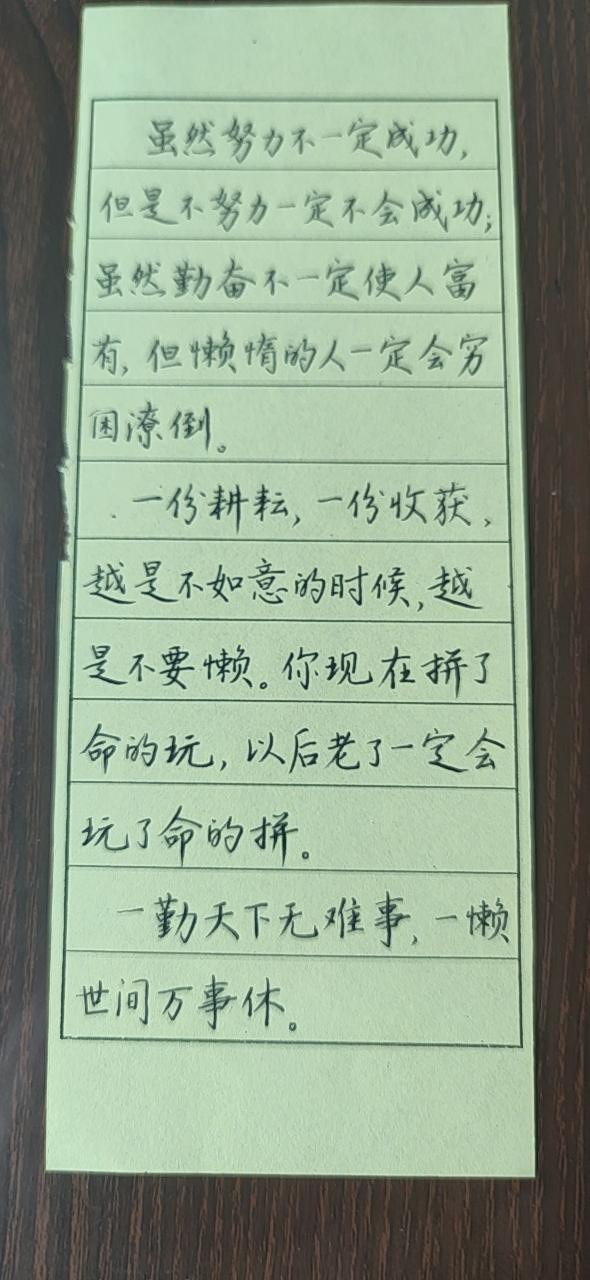 虽然努力不一定成功,
但是不努力一定不会成功;
虽然勤奋不一定使人富
有,但懒惰的人一定会穷
困潦倒。
一份耕耘,一份收获,
越是不如意的时候,越
是不要懒。你现在拼了
命的玩,以后老了一定会
玩了命的拼。
一勤天下无难事,一懒
世间万事休。